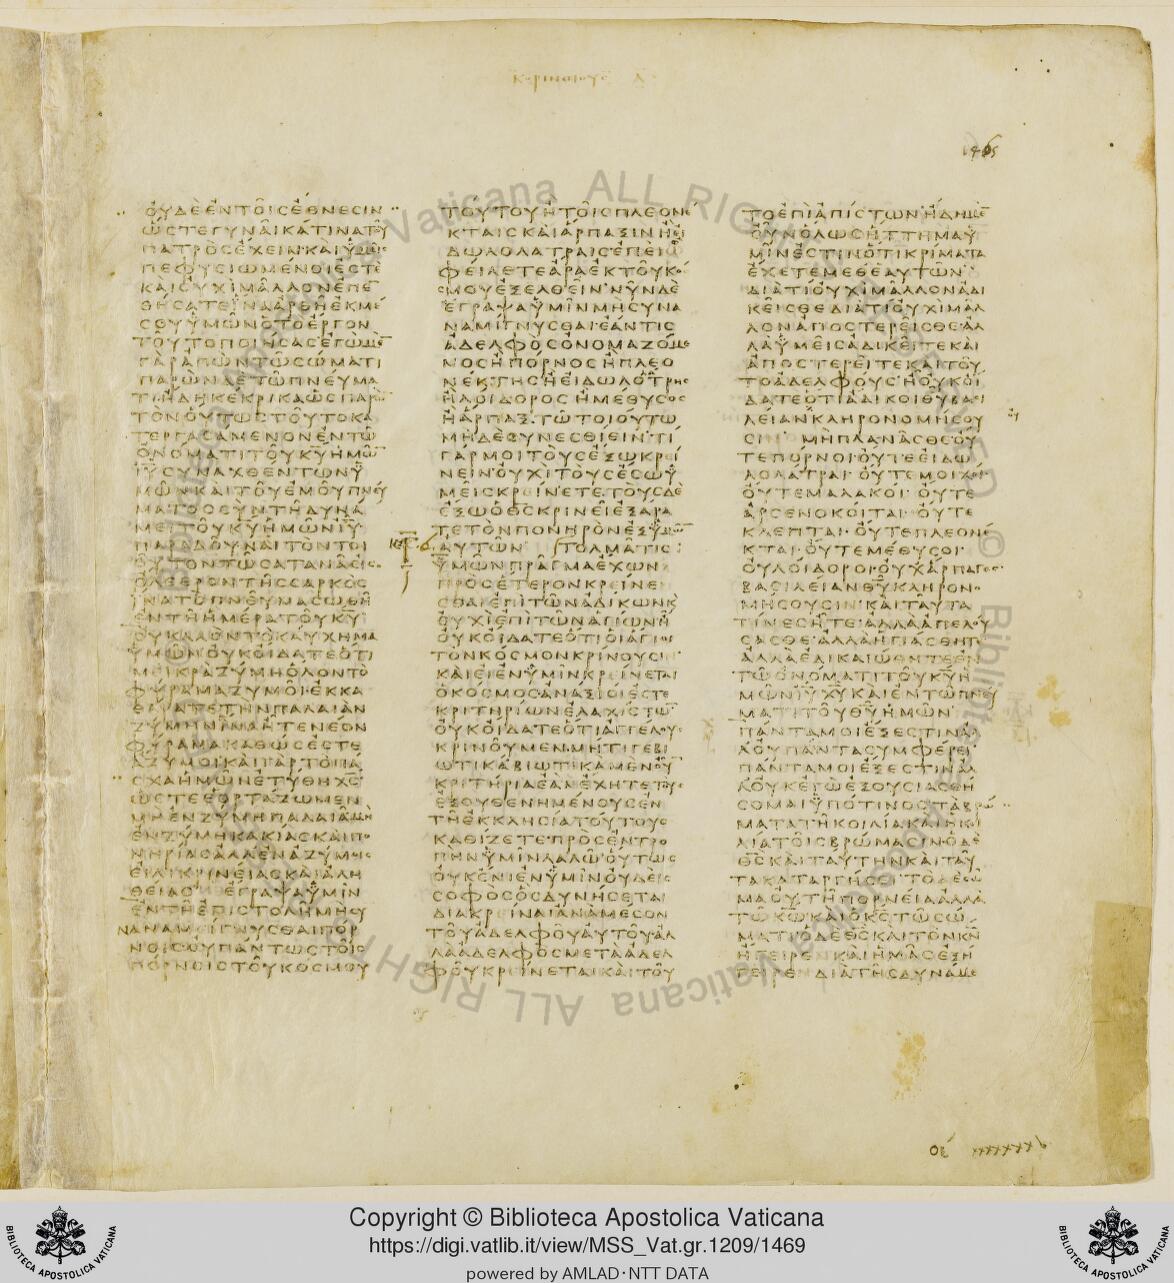 ΚΟΡΙΝΘΙΟΥΣ Α
1465
ΟΥΔΕΕΝΤΟΙϹΕΘΝΕϹΙΝ
ΩϹΤΕΓΥΝΑΙΚΑΤΙΝΑΤΟΥ
ΠΑΤΡΟϹΕΧΕΙΝΚΑΙΥΜΕΙϹ
ΠΕΦΥϹΙΩΜΕΝΟΙΕϹΤΕ
ΚΑΙΟΥΧΙΜΑΛΛΟΝΕΠΕ
ΘΗϹΑΤΕΙΝΑΑΡΘΗΕΚΜΕ
ϹΟΥΥΜΩΝΟΤΟΕΡΓΟΝ
ΤΟΥΤΟΠΟΙΗϹΑϹΕΓΩΜΕ̅
ΓΑΡΑΠΩΝΤΩϹΩΜΑΤΙ
ΠΑΡΩΝΔΕΤΩΠΝΕΥΜΑ
ΤΙΗΔΗΚΕΚΡΙΚΑΩϹΠΑΡΩ̅
ΤΟΝΟΥΤΩϹΤΟΥΤΟΚΑ
ΤΕΡΓΑϹΑΜΕΝΟΝΕΝΤΩ
ΟΝΟΜΑΤΙΤΟΥΚ̅Υ̅ΗΜΩ̅
Ι̅Υ̅ϹΥΝΑΧΘΕΝΤΩΝΥ
ΜΩΝΚΑΙΤΟΥΕΜΟΥΠΝΕΥ
ΜΑΤΟϹϹΥΝΤΗΔΥΝΑ
ΜΕΙΤΟΥΚ̅Υ̅ΗΜΩΝΙ̅Υ̅
ΠΑΡΑΔΟΥΝΑΙΤΟΝΤΟΙ
ΟΥΤΟΝΤΩϹΑΤΑΝΑΕΙϹ
ΟΛΕΘΡΟΝΤΗϹϹΑΡΚΟϹ
ΙΝΑΤΟΠΝΕΥΜΑϹΩΘΗ
ΕΝΤΗΗΜΕΡΑΤΟΥΚ̅Υ̅
ΟΥΚΑΛΟΝΤΟΚΑΥΧΗΜΑ
ΥΜΩΝΟΥΚΟΙΔΑΤΕΟΤΙ
ΜΕΙΚΡΑΖΥΜΗΟΛΟΝΤΟ
ΦΥΡΑΜΑΖΥΜΟΙΕΚΚΑ
ΘΑΡΑΤΕΤΗΝΠΑΛΑΙΑΝ
ΖΥΜΗΝΙΝΑΗΤΕΝΕΟΝ
ΦΥΡΑΜΑΚΑΘΩϹΕϹΤΕ
ΑΖΥΜΟΙΚΑΙΓΑΡΤΟΠΑ
ϹΧΑΗΜΩΝΕΤΥΘΗΧ̅Ϲ̅
ΩϹΤΕΕΟΡΤΑΖΩΜΕΝ
ΜΗΕΝΖΥΜΗΠΑΛΑΙΑΜΗ
ΕΝΖΥΜΗΚΑΚΙΑϹΚΑΙΠΟ
ΝΗΡΙΑϹΑΛΛΕΝΑΖΥΜΟΙϹ
ΕΙΛΙΚΡΙΝΕΙΑϹΚΑΙΑΛΗ
ΘΕΙΑϹ ΕΓΡΑΨΑΥΜΙΝ
ΕΝΤΗΕΠΙϹΤΟΛΗΜΗϹΥ
ΝΑΝΑΜΙΓΝΥϹΘΑΙΠΟΡ
ΝΟΙϹΟΥΠΑΝΤΩϹΤΟΙϹ
ΠΟΡΝΟΙϹΤΟΥΚΟϹΜΟΥ
ΤΟΥΤΟΥΗΤΟΙϹΠΛΕΟΝΕ
ΚΤΑΙϹΚΑΙΑΡΠΑΞΙΝΗΕΙ
ΔΩΛΟΛΑΤΡΑΙϹΕΠΕΙΩ
ΦΕΙΛΕΤΕΑΡΑΕΚΤΟΥΚΟ
ϹΜΟΥΕΞΕΛΘΕΙΝΝΥΝΔΕ
ΕΓΡΑΨΑΥΜΙΝΜΗϹΥΝΑ
ΝΑΜΙΓΝΥϹΘΑΙΕΑΝΤΙϹ
ΑΔΕΛΦΟϹΟΝΟΜΑΖΟΜΕ
ΝΟϹΗΠΟΡΝΟϹΗΠΛΕΟ
ΝΕΚΤΗϹΗΕΙΔΩΛΟΛΑΤΡΗϹ
ΗΛΟΙΔΟΡΟϹΗΜΕΘΥϹΟϹ
ΗΑΡΠΑΞΤΩΤΟΙΟΥΤΩ
ΜΗΔΕϹΥΝΕϹΘΙΕΙΝΤΙ
ΓΑΡΜΟΙΤΟΥϹΕΞΩΚΡΕΙ
ΝΕΙΝΟΥΧΙΤΟΥϹΕϹΩΥ
ΜΕΙϹΚΡΕΙΝΕΤΕΤΟΥϹΔΕ
ΕΞΩΟΘ̅Ϲ̅ΚΡΙΝΕΙΕΞΑΡΑ
ΤΕΤΟΝΠΟΝΗΡΟΝΕΞΥΜΩ̅
ΑΥΤΩΝ ΤΟΛΜΑΤΙϹ
ΥΜΩΝΠΡΑΓΜΑΕΧΩΝ
ΠΡΟϹΕΤΕΡΟΝΚΡΕΙΝΕ
ϹΘΑΙΕΠΙΤΩΝΑΔΙΚΩΝΚ
ΟΥΧΙΕΠΙΤΩΝΑΓΙΩΝΗ
ΟΥΚΟΙΔΑΤΕΟΤΙΟΙΑΓΙΟΙ
ΤΟΝΚΟϹΜΟΝΚΡΙΝΟΥϹΙΝ
ΚΑΙΕΙΕΝΥΜΙΝΚΡΕΙΝΕΤΑΙ
ΟΚΟϹΜΟϹΑΝΑΞΙΟΙΕϹΤΕ
ΚΡΙΤΗΡΙΩΝΕΛΑΧΙϹΤΩ̅
ΟΥΚΟΙΔΑΤΕΟΤΙΑΓΓΕΛΟΥϹ
ΚΡΙΝΟΥΜΕΝΜΗΤΙΓΕΒΙ
ΩΤΙΚΑΒΙΩΤΙΚΑΜΕΝΟΥ̅
ΚΡΙΤΗΡΙΑΕΑΝΕΧΗΤΕΤΟΥϹ
ΕΞΟΥΘΕΝΗΜΕΝΟΥϹΕΝ
ΤΗΕΚΚΛΗϹΙΑΤΟΥΤΟΥϹ
ΚΑΘΙΖΕΤΕΠΡΟϹΕΝΤΡΟ
ΠΗΝΥΜΙΝΛΑΛΩΟΥΤΩϹ
ΟΥΚΕΝΙΕΝΥΜΙΝΟΥΔΕΙϹ
ϹΟΦΟϹΟϹΔΥΝΗϹΕΤΑΙ
ΔΙΑΚΡΕΙΝΑΙΑΝΑΜΕϹΟΝ
ΤΟΥΑΔΕΛΦΟΥΑΥΤΟΥΑΛ
ΛΑΑΔΕΛΦΟϹΜΕΤΑΑΔΕΛ
ΦΟΥΚΡΕΙΝΕΤΑΙΚΑΙΤΟΥ
ΤΟΕΠΙΑΠΙϹΤΩΝΗΔΗΜΕ̅
ΟΥΝΟΛΩϹΗΤΤΗΜΑΥ
ΜΙΝΕϹΤΙΝΟΤΙΚΡΙΜΑΤΑ
ΕΧΕΤΕΜΕΘΕΑΥΤΩΝ
ΔΙΑΤΙΟΥΧΙΜΑΛΛΟΝΑΔΙ
ΚΕΙϹΘΕΔΙΑΤΙΟΥΧΙΜΑΛ
ΛΟΝΑΠΟϹΤΕΡΕΙϹΘΕΑΛ
ΛΑΥΜΕΙϹΑΔΙΚΕΙΤΕΚΑΙ
ΑΠΟϹΤΕΡΕΙΤΕΚΑΙΤΟΥ
ΤΟΑΔΕΛΦΟΥϹΗΟΥΚΟΙ
ΔΑΤΕΟΤΙΑΔΙΚΟΙΘΥΒΑϹΙ
ΛΕΙΑΝΚΛΗΡΟΝΟΜΗϹΟΥ
ϹΙΝ ΜΗΠΛΑΝΑϹΘΕΟΥ
ΤΕΠΟΡΝΟΙΟΥΤΕΕΙΔΩ
ΛΟΛΑΤΡΑΙΟΥΤΕΜΟΙΧΟΙ
ΟΥΤΕΜΑΛΑΚΟΙΟΥΤΕ
ΑΡϹΕΝΟΚΟΙΤΑΙΟΥΤΕ
ΚΛΕΠΤΑΙΟΥΤΕΠΛΕΟΝΕ
ΚΤΑΙΟΥΤΕΜΕΘΥϹΟΙ
ΟΥΛΟΙΔΟΡΟΙΟΥΧΑΡΠΑΓΕϹ
ΒΑϹΙΛΕΙΑΝΘ̅Υ̅ΚΛΗΡΟΝΟ
ΜΗϹΟΥϹΙΝΚΑΙΤΑΥΤΑ
ΤΙΝΕϹΗΤΕΑΛΛΑΑΠΕΛΟΥ
ϹΑϹΘΕΑΛΛΑΗΓΙΑϹΘΗΤΕ
ΑΛΛΑΕΔΙΚΑΙΩΘΗΤΕΕΝ
ΤΩΟΝΟΜΑΤΙΤΟΥΚ̅Υ̅Η
ΜΩΝΙ̅Υ̅Χ̅Υ̅ΚΑΙΕΝΤΩΠΝΕΥ
ΜΑΤΙΤΟΥΘ̅Υ̅ΗΜΩΝ
ΠΑΝΤΑΜΟΙΕΞΕϹΤΙΝΑΛ
ΛΟΥΠΑΝΤΑϹΥΜΦΕΡΕΙ
ΠΑΝΤΑΜΟΙΕΞΕϹΤΙΝΑΛ
ΛΟΥΚΕΓΩΕΞΟΥϹΙΑϹΘΗ
ϹΟΜΑΙΥΠΟΤΙΝΟϹΤΑΒΡΩ
ΜΑΤΑΤΗΚΟΙΛΙΑΚΑΙΗΚΟΙ
ΛΙΑΤΟΙϹΒΡΩΜΑϹΙΝΟΔΕ
Θ̅Ϲ̅ΚΑΙΤΑΥΤΗΝΚΑΙΤΑΥ
ΤΑΚΑΤΑΡΓΗϹΕΙΤΟΔΕϹΩ
ΜΑΟΥΤΗΠΟΡΝΕΙΑΑΛΛΑ
ΤΩΚ̅Ω̅ΚΑΙΟΚ̅Ϲ̅ΤΩϹΩ
ΜΑΤΙΟΔΕΘ̅Ϲ̅ΚΑΙΤΟΝΚ̅Ν̅
ΗΓΕΙΡΕΝΚΑΙΗΜΑϹΕΞΗ
ΓΕΙΡΕΝΔΙΑΤΗϹΔΥΝΑΜΕ
Copyright © Biblioteca Apostolica Vaticana
https://digi.vatlib.it/view/MSS_Vat.gr.1209/1469
powered by AMLAD · NTT DATA
BIBLIOTECA APOSTOLICA VATICANA
BIBLIOTECA APOSTOLICA VATICANA